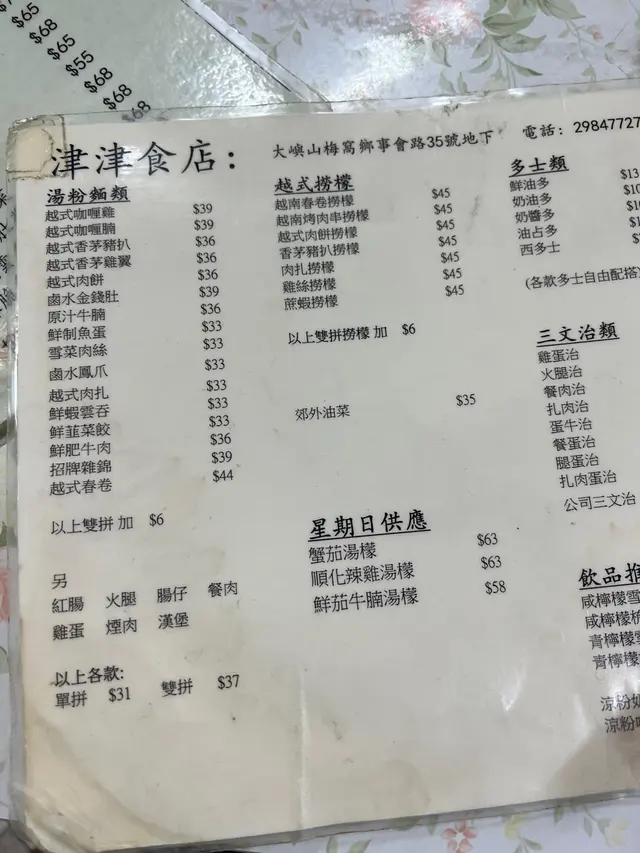 $65
$68
$65
$55
$68
$68
$68
津津食店:
大嶼山梅窩鄉事會路35號地下
電話: 29847727
湯粉麵類
越式咖喱雞 $39
越式咖喱腩 $39
越式香茅豬扒 $36
越式香茅雞翼 $36
越式肉餅 $36
鹵水金錢肚 $39
原汁牛腩 $36
鮮制魚蛋 $33
雪菜肉絲 $33
鹵水鳳爪 $33
越式肉扎 $33
鮮蝦雲吞 $33
鮮韮菜餃 $33
鮮肥牛肉 $36
招牌雜錦 $39
越式春卷 $44
以上雙拼 加 $6
另
紅腸 火腿 腸仔 餐肉
雞蛋 煙肉 漢堡
以上各款:
單拼 $31 雙拼 $37
越式撈檬
越南春卷撈檬 $45
越南烤肉串撈檬 $45
越式肉餅撈檬 $45
香茅豬扒撈檬 $45
肉扎撈檬 $45
雞絲撈檬 $45
蔗蝦撈檬
以上雙拼撈檬 加 $6
郊外油菜 $35
星期日供應
蟹茄湯檬 $63
順化辣雞湯檬 $63
鮮茄牛腩湯檬 $58
多士類
鮮油多 $13
奶油多
奶醬多
油占多
西多士
(各款多士自由配搭
三文治類
雞蛋治
火腿治
餐肉治
扎肉治
蛋牛治
餐蛋治
腿蛋治
扎肉蛋治
公司三文治
飲品推
咸檸檬雪
咸檸檬
青檸檬
青檸檬
涼粉
涼粉